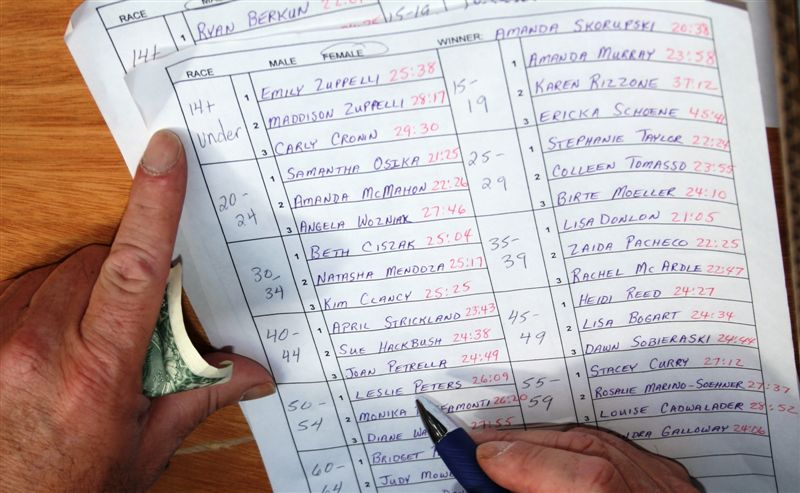 RACE MALE
14+ 1 RYAN BERKUN 15-19
RACE MALE FEMALE WINNER: AMANDA SKORUPSKI 20:38
14+ Under
1 EMILY ZUPPELLI 25:38
2 MADDISON ZUPPELLI 28:17
3 CARLY CRONIN 29:30
15-19
1 AMANDA MURRAY 23:58
2 KAREN RIZZONE 37:12
3 ERICKA SCHOENE
20-24
1 SAMANTHA OSIKA 21:25
2 AMANDA MCMAHON 22:26
3 ANGELA WOZNIAK 27:46
25-29
1 STEPHANIE TAYLOR 22:24
2 COLLEEN TOMASSO 23:55
3 BIRTE MOELLER 24:10
30-34
1 BETH CISZAK 25:04
2 NATASHA MENDOZA 25:17
3 KIM CLANCY 25:25
35-39
1 LISA DONLON 21:05
2 ZAIDA PACHECO 22:25
3 RACHEL MC ARDLE 22:47
40-44
1 APRIL STRICKLAND 23:43
2 SUE HACKBUSH 24:38
3 JOAN PETRELLA 24:49
45-49
1 HEIDI REED 24:27
2 LISA BOGART 24:34
3 DAWN SOBIERASKI 24:44
50-54
1 LESLIE PETERS 26:09
2 MONIKA 26:20
3 DIANE 27:55
55-59
1 STACEY CURRY 27:12
2 ROSALIE MARINO-SOEHNER 27:37
3 LOUISE CADWALADER 28:52
60-64
1 BRIDGET
2 JUDY
GALLOWAY 24:06